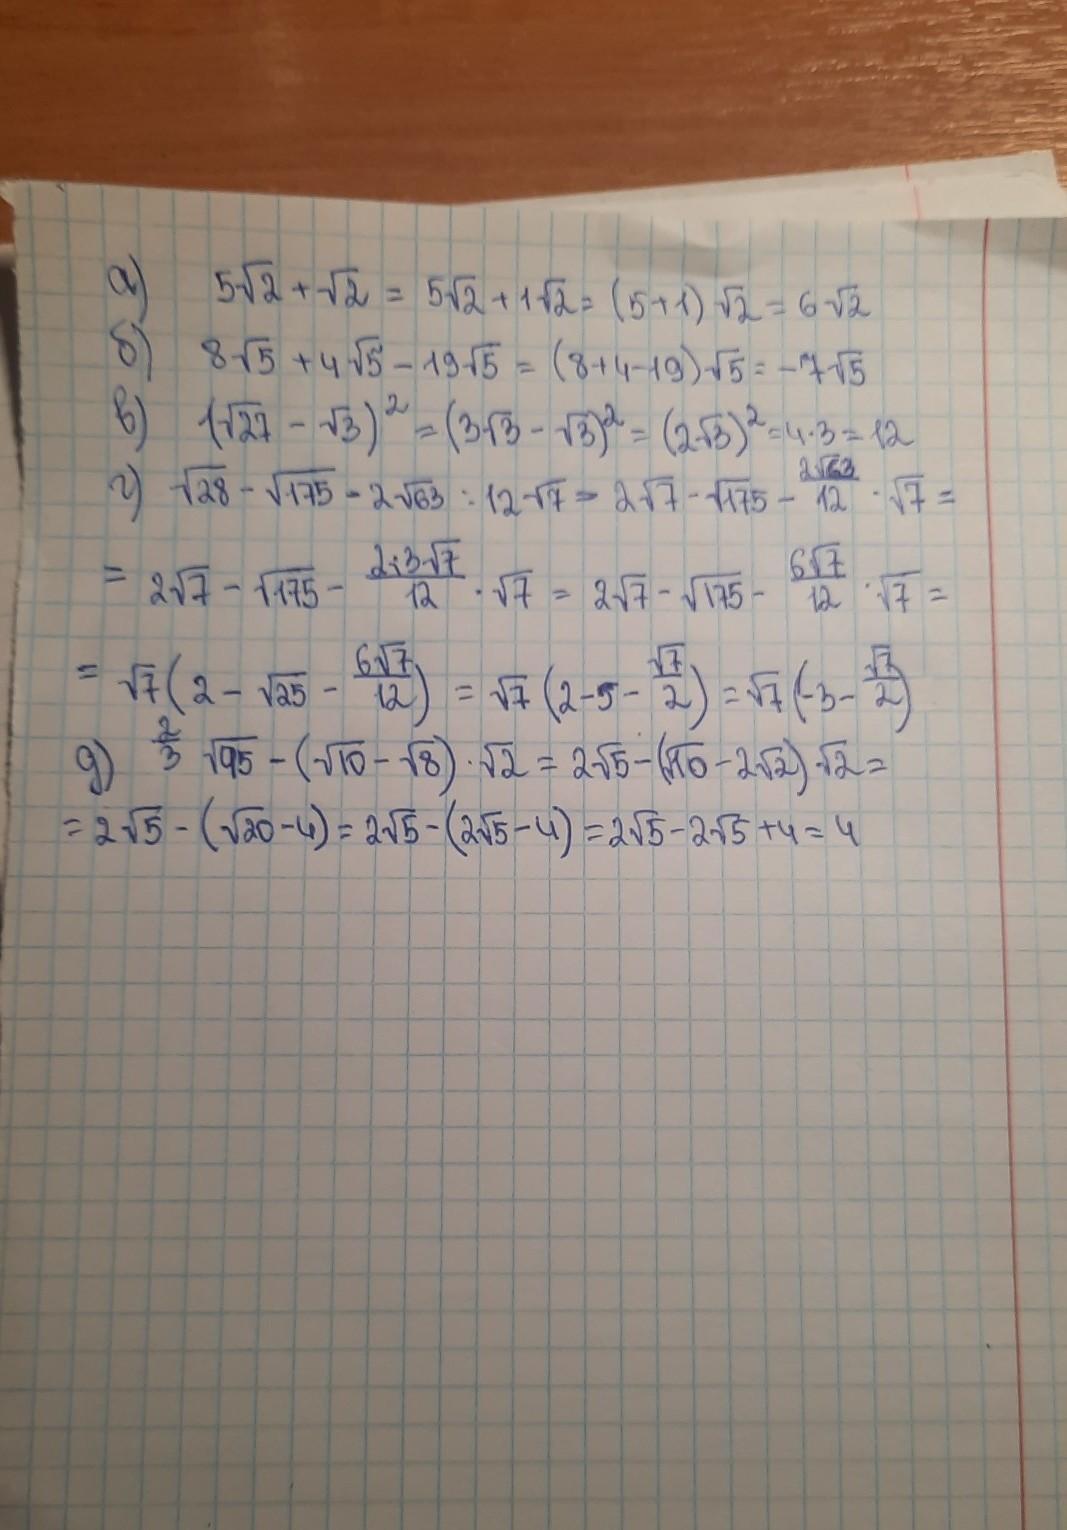 а) 5√2 + √2 = 5√2 + 1√2 = (5+1) √2 = 6√2
б) 8√5 + 4√5 - 19√5 = (8+4-19)√5 = -7√5
в) (√27 - √3)² = (3√3 - √3)² = (2√3)² = 4·3 = 12
г) √28 - √175 - 2√63 : 12·√7 = 2√7 - √175 - 2√63/12 · √7 =
= 2√7 - √175 - 2·3·√7/12 · √7 = 2√7 - √175 - 6√7/12 · √7 =
= √7 (2 - √25 - 6√7/12) = √7 (2-5 - √7/2) = √7 (-3 - √7/2)
д) 2/3 √45 - (√10 - √8) · √2 = 2√5 - (√10 - 2√2) √2 =
= 2√5 - (√20 - 4) = 2√5 - (2√5 - 4) = 2√5 - 2√5 + 4 = 4